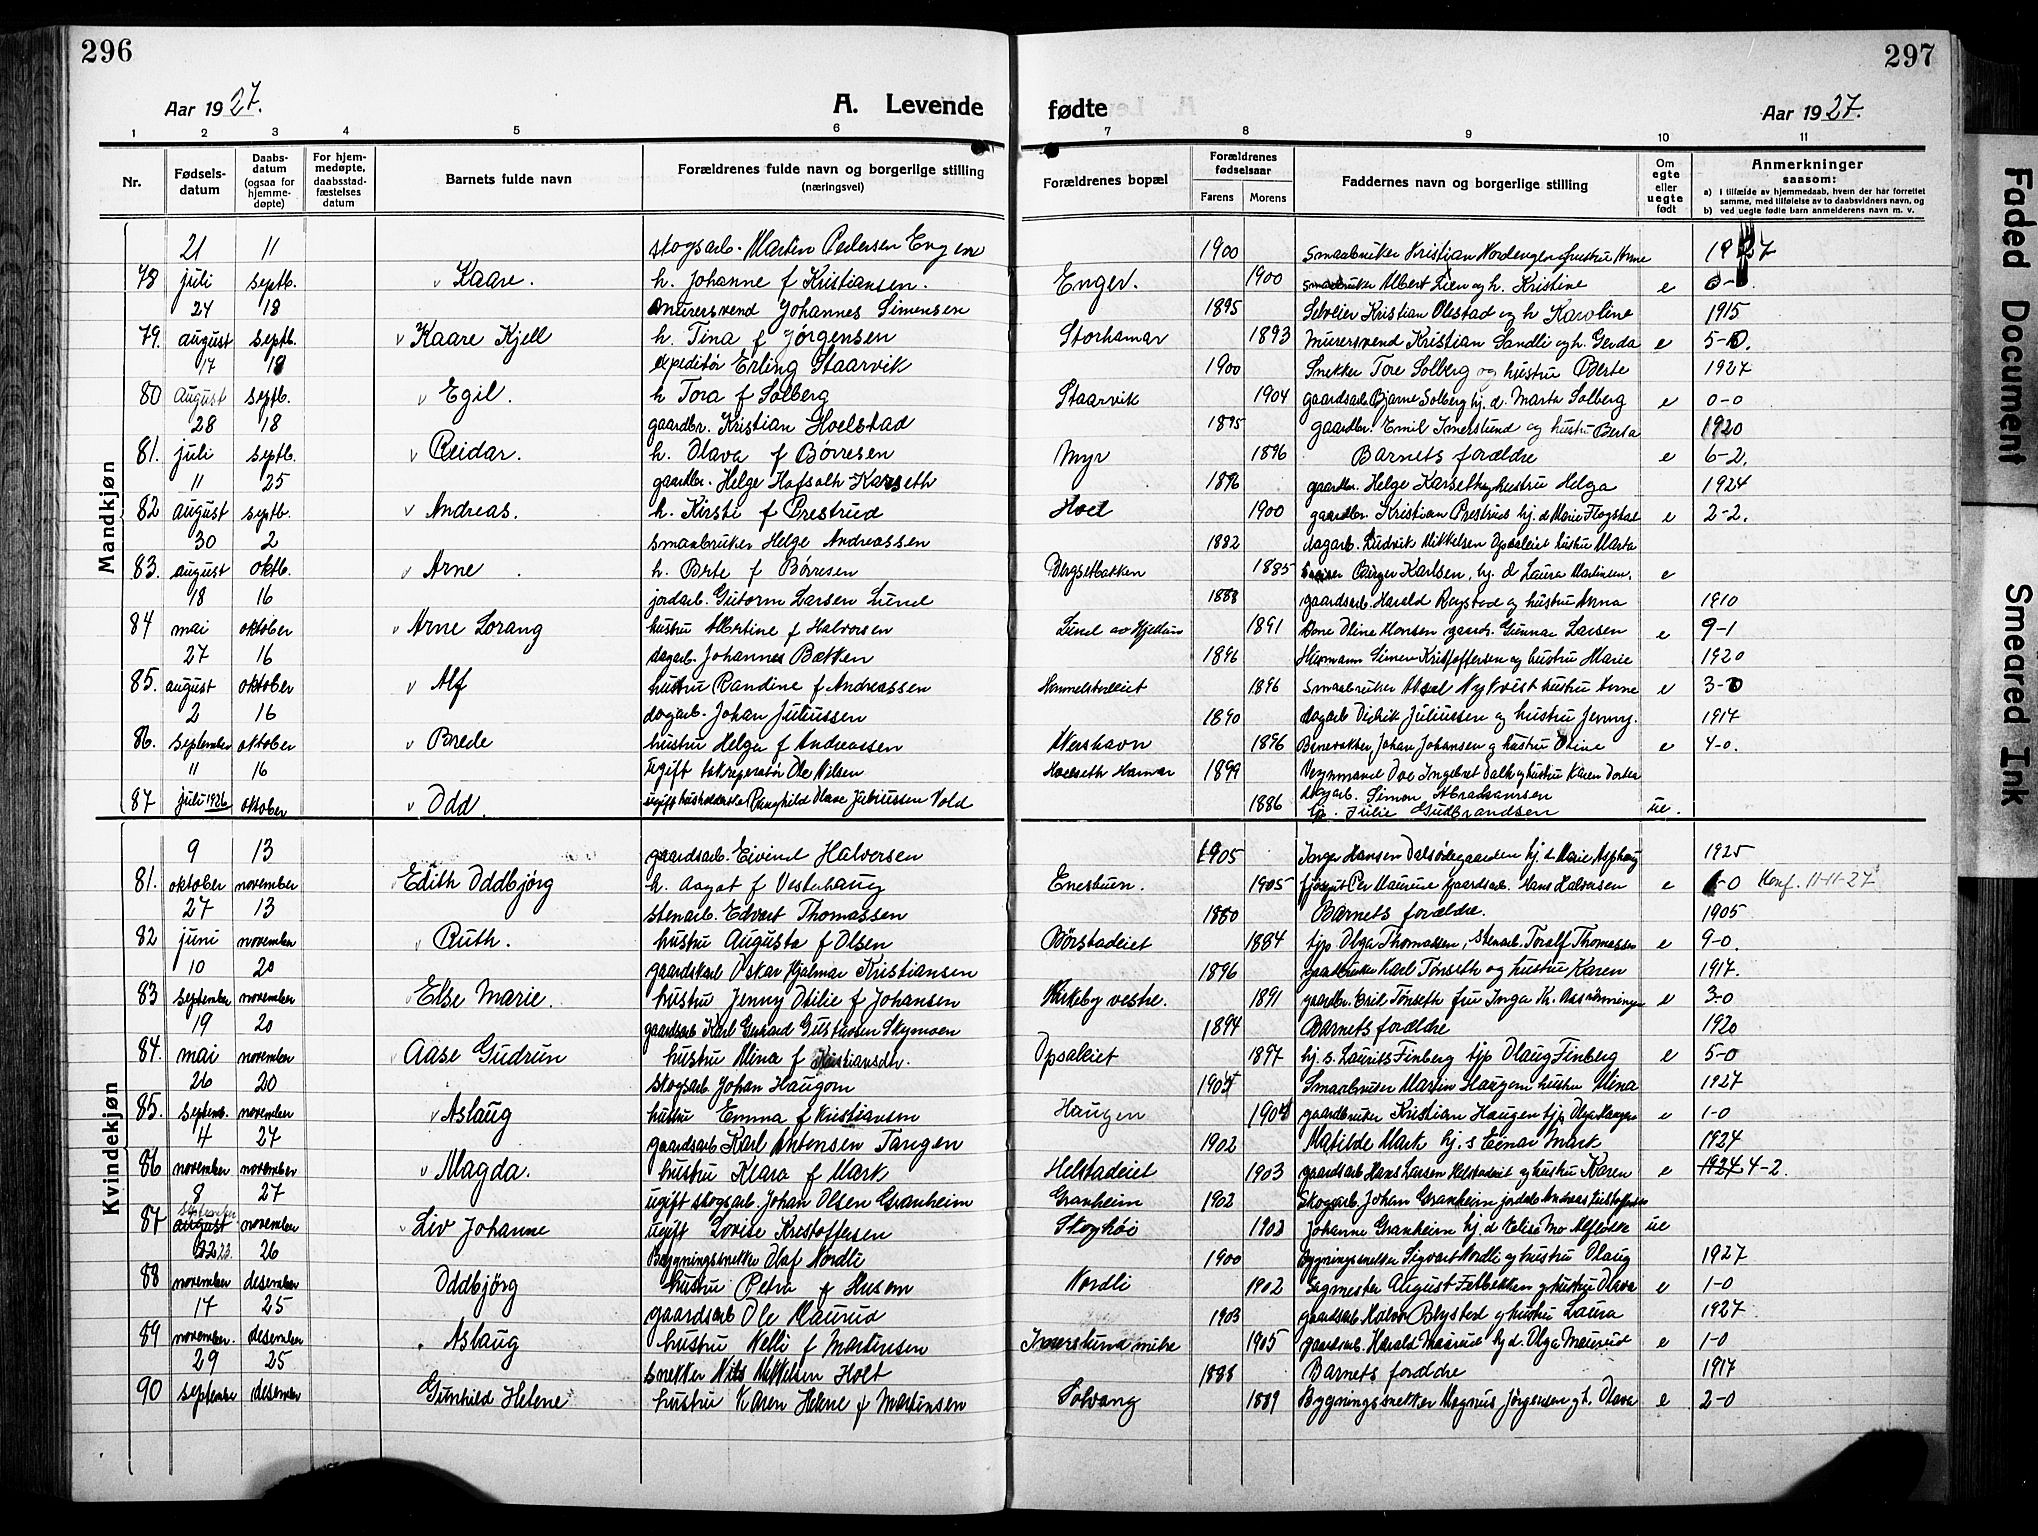 296
297
Aar 1927.
A. Levende
fødte
Aar 1927.
1 2 3 4 5 6 7 8 9 10 11
Nr.
Fødsels-
datum
Daabs-
datum
(ogsaa for
hjemme-
døpte)
For hjem-
medøpte,
daabsstad-
fæstelses
datum
Barnets fulde navn
Forældrenes fulde navn og borgerlige stilling
(næringsvei)
Forældrenes bopæl
Forældrenes
fødselsaar
Farens Morens
Faddernes navn og borgerlige stilling
Om
egte
eller
uegte
født
Anmerkninger
saasom:
a) I tilfælde av hjemmedaab, hvem der har forrettet
samme, med tilføielse av to daabsvidners navn, og
b) ved uegte fødte barn anmelderens navn m. v.
Mandkjøn
21 11 skogsarb. Martin Pedersen Engen 1900 Smaabruker Kristian Nordengen hustru Anne 1927
78 juli septb. Kaare. h. Johanne f Kristiansen. Enger. 1900 smaabruker Albert Lien og h. Kristine e 0-
24 18 murersvend Johannes Simensen 1895 Selveier Kristian Olestad og h Karoline 1915
79. august septb. Kaare Kjell h. Tina f Jørgensen Storhamar 1893 murersvend Kristian Sandli og h. Gerda e 5-0.
17 18 expeditør Erling Staarvik 1900 Snekker Tore Solberg og hustru Berte 1927
80 august septb. Egil. h Tora f Solberg Staarvik 1904 gaardsarb Bjarne Solberg hj. d. Marta Solberg e 0-0
28 18 gaardbr. Kristian Hoelstad 1895 gaardbr. Emil Imerslund og hustru Berta 1920
81. juli septb. Reidar. h. Olava f Børresen Myr 1896 Barnets forældre e 6-2.
11 25 gaardbr. Helge Hafsalh Karseth 1896 gaardbr. Helge Karseth og hustru Helga 1924
82 august septb. Andreas. h. Kirsti f Prestrud Hoel 1900 gaardbr. Kristian Prestrud hj. d Marie Flagstad e 2-2.
30 2 smaabruker Helge Andreassen 1882 dagarb. Ludvik Mikkelsen Opsaleiet hustru Marta
83. august oktb. Arne h. Berte f Børresen Bergsetbakken 1885 Birger Karlsen, hj. d Laura Martinsen. e
18 16 jordarb. Gutorm Larsen Lund 1888 gaardsarb. Harald Rogstad og hustru Anna 1910
84 mai oktober Arne Lorang hustru Albertine f Halvorsen Lund av Hjellum 1891 Oline Monsen Gunnar Larsen e 9-1
27 16 dagarb. Johannes Bakken 1896 Husmann Simen Kristoffersen og hustru Marie 1920
85. august oktober Alf hustru Randine f Andreassen 1896 Smaabruker Aksel Nykvist hustru Anne e 3-0
2 16 dagarb. Johan Juliussen 1890 dagarb Didrik Juliussen og hustru Jenny. 1917
86. september oktober Brede hustru Helga f Andreassen Akershavn 1896 Banevokter Johan Johansen og hustru Oline e 4-0.
11 16 Ugift Ole Nilsen Hoelseth Hamar 1899 Ole Ingebret Dalh og hustru Karen Dortea
87 juli 1926 oktober Odd. ugift husholderske Ragnhild Olave Juliussen Vold 1886 dagarb. Simon Abrahamsen
hj. Julie Gudbrandsen ue.
Kvindekjøn
9 13 gaardsarb. Eivind Halversen 1905 Inga Hansen Dalsødegaarden hj. d Marie Asphaug 1925
81. oktober november Edith Oddbjørg h. Aagot f Vesterhaug Enestuen. 1905 Per Maurud gaardsarb. Hans Halversen e 1-0 Konf. 11-11-27
27 13 stenarb. Edvart Thomassen 1880 Barnets forældre. 1905
82 juni november Ruth. hustru Augusta f Olsen Børstadeiet 1884 tjp Olga Thomassen, stenarb. Toralf Thomassen e 9-0.
10 20 gaardskarl Oskar Hjalmar Kristiansen 1896 gaardbruker Karl Tønseth og hustru Karen 1917.
83 september november Else Marie. hustru Jenny Otilie f Johansen Kirkeby vestre. 1891 gaardbr. Emil Tønseth fru Inga Kr. e 3-0
19 20 gaardsarb Karl Gerhard Gustavsen Skymoen 1894 Barnets forældre 1920
84. mai november Aase Gudrun hustru Mina f Kristiansdtr. Opsaleiet 1897 hj. s. Laurits Finberg tjp Olaug Finberg e 5-0
26 20 skogsarb Johan Haugom 1905 Smaabruker Martin Haugen hustru Mina 1927
85. septemb. november Aslaug hustru Emma f Kristiansen Haugen 1904 gaardbruker Kristian Haugen tjp Olga Haugen e 1-0
4 27 gaardsarb Karl Antonsen Tangen 1902 Matilde Mark hj. s Einar Mark 1924
86 november november Magda. hustru Klara f Mark Helstadeiet 1903 gaardsarb Hans Larsen Helstadeiet og hustru Karen e 1924 4-2.
8 27 ugift skogsarb. Johan Olsen Granheim Granheim 1902 Skogsarb. Johan Granheim jordarb Andreas Kristoffersen
87 september august november Liv Johanne ugift Lovise Kristoffersen Skoghøi 1902 Johanne Granheim hj. d Elise Mo ue
22 23 26 Bygningssnekker Olaf Nordli 1900 Bygningssnekker Sigvart Nordli og hustru Olaug 1927
88 november desember Oddbjørg hustru Petra f Husom Nordli 1902 Sagmester August Fetbekken og hustru Olava e 1-0
17 25 gaardsarb Ole Maurud 1903 gaardsarb Halvor Blystad og hustru Laura 1927
89 november. desember Aslaug hustru Nelli f Martinsen Imerslund nedre 1905 gaardsarb. Harald Maurud hj d. Olga Maurud e 1-0
29 25 snekker Nils Mikkelsen Holt 1888 Barnets forældre 1917
90 september desember Gunhild Helene hustru Karen Helene f Martinsen Solvang 1889 Bygningssnekker Magnus Jørgensen og h. Olava e 2-0
Faded Document
Smeared Ink